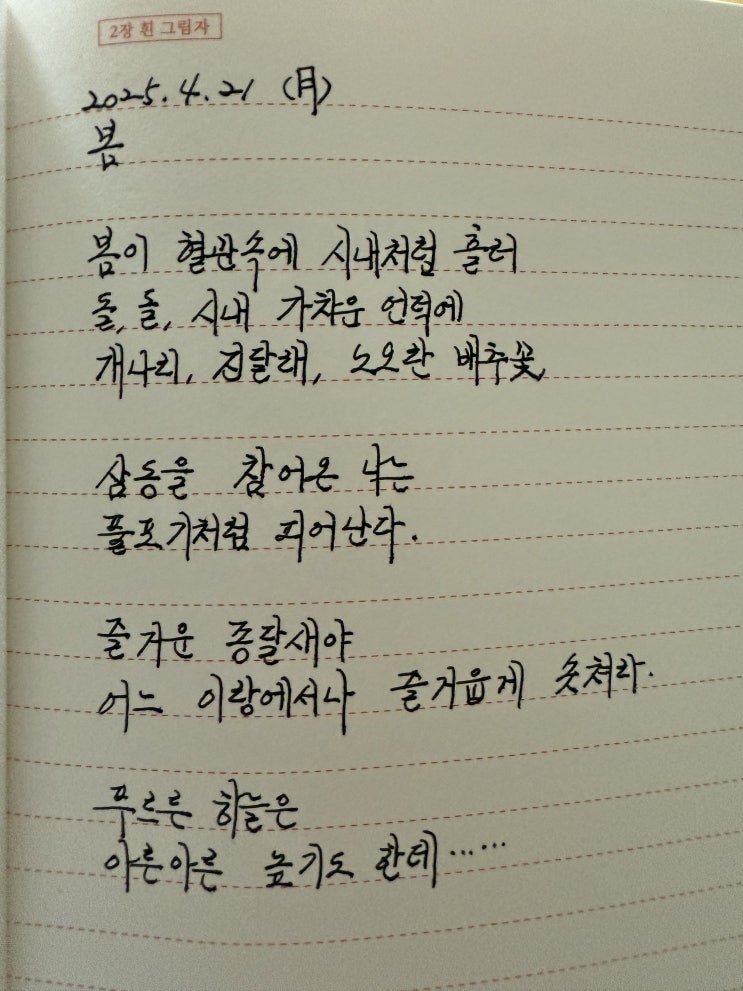 2장 흰 그림자
2025.4.21 (月)
봄
봄이 혈관속에 시내처럼 흘러
돌, 돌, 시내 가차운 언덕에
개나리, 진달래, 노오란 배추꽃,
삼동을 참어온 나는
풀포기처럼 피어난다.
즐거운 종달새야
어느 이랑에서나 즐거웁게 솟쳐라.
푸르른 하늘은
아른아른 높기도 한데……